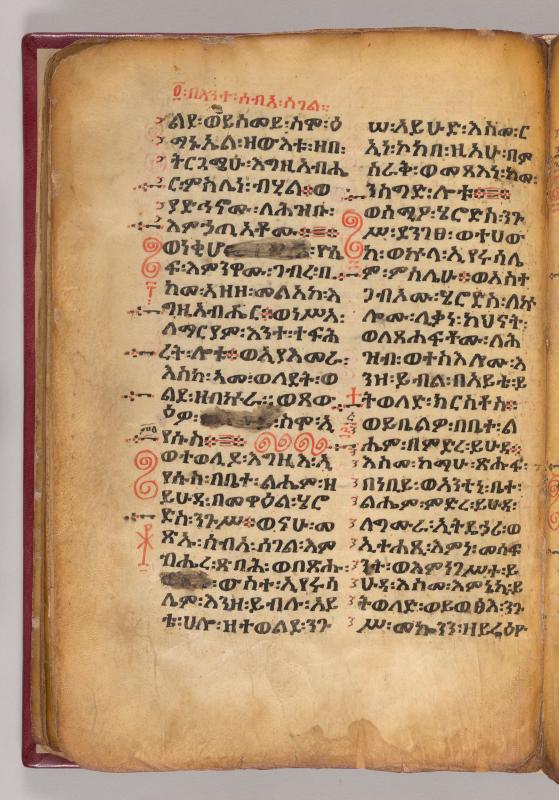 በእንተ፡ሰብአ፡ሰገል፡፡
ልደ፡ወይሰመይ፡ስሞ፡ዐ
ማኑኤል፡ዘውእቱ፡ዘበ፡
ትርጓሜሁ፡እግዚአብሔ
ር፡ምስሌነ፡ብሂል።ወ
ያድኅኖሙ፡ለሕዝቡ፡
እምኃጢአቶሙ።
ወነቂሆ፡ዮሴ
ፍ፡እምንዋሙ፡ገብረ፡በ
ከመ፡አዘዘ፡መልአከ፡እ
ግዚአብሔር።ወነሥአ፡
ለማርያም፡እንተ፡ተፍሕ
ረት፡ሎቱ።ወኢያእመራ፡
እስከ፡አመ፡ወለደት፡ወ
ልደ፡ዘበኵራ፡፡ወጸው
ዖ፡ስሞ፡ኢ
የሱስ።
ወተወሊዶ፡እግዚእ፡ኢ
የሱስ፡በቤተ፡ልሔም፡ዘ
ይሁዳ፡በመዋዕል፡ሄሮ
ድስ፡ንጉሥ።ወናሁ፡መ
ጽኡ፡ሰብአ፡ሰገል፡እም
ብሔረ፡ጽባሕ፡ወበጽሑ፡
ውስተ፡ኢየሩሳ
ሌም፡እንዘ፡ይብሉ፡አይ
ቴ፡ሀሎ፡ዘተወልደ፡ንጉ
ሠ፡አይሁድ፡እስመ፡ር
ኢነ፡ኮከበ፡ዚአሁ፡በም
ስራቅ፡ወመጻእነ፡ከመ፡
ንስግድ፡ሎቱ።
ወሰሚዖ፡ሄሮድስ፡ንጉ
ሥ፡ደንገፀ፡ወተሀው
ከ፡ወኵላ፡ኢየሩሳሌ
ም፡ምስሌሁ።ወአስተ
ጋብኦሙ፡ሄሮድስ፡ለኵ
ሎሙ፡ሊቃነ፡ካህናት፡
ወለጸሐፍቶሙ፡ለሕ
ዝብ፡ወተስእሎሙ፡እ
ንዘ፡ይብል፡በአይቴ፡ይ
ትወለድ፡ክርስቶስ።
ወይቤልዎ፡በቤተ፡ል
ሔም፡ዘምድረ፡ይሁዳ።
እስመ፡ከማሁ፡ጽሑፍ፡
በነቢይ፡ወአንቲኒ፡ቤተ፡
ልሔም፡ምድረ፡ይሁዳ፡
ለግሙራ፡ኢትዴኃሪ፡ወ
ኢትሐጺ፡እምነ፡መሳፍ
ንተ፡ወእምነገሥተ፡ይ
ሁዳ፡እስመ፡እምኔኪ፡ይ
ትወለድ፡ወይወፅእ፡ንጉ
ሥ፡መኰንን፡ዘይሬዕዮ